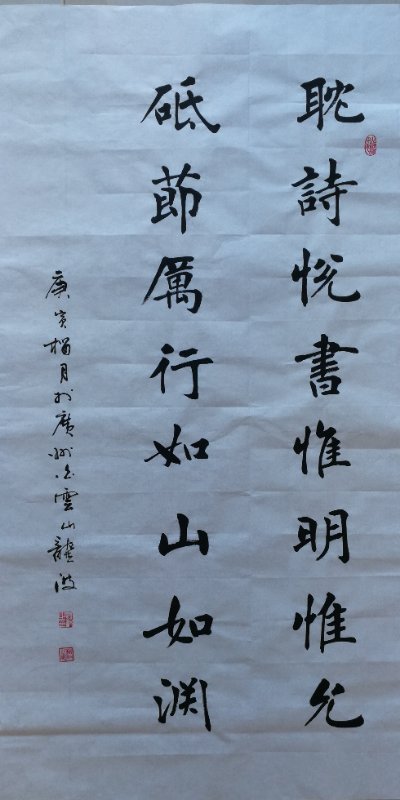 耽詩悅書惟明惟允
砥節厲行如山如淵
庚寅榴月於廣州白雲山龍波